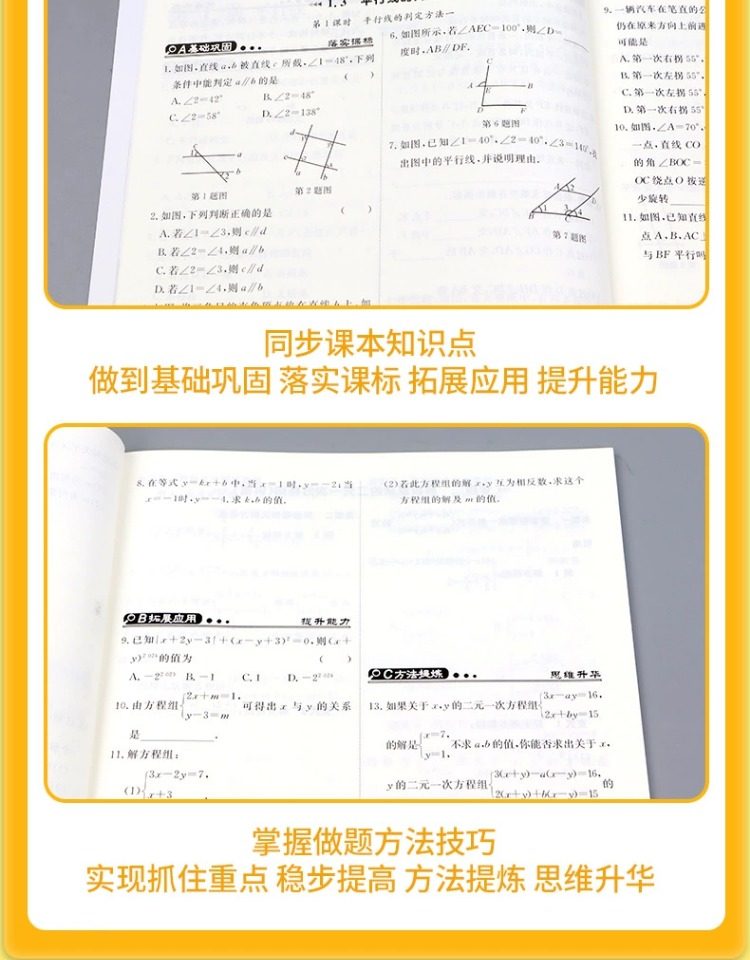 1.3 平行线的
第1课时 平行线的判定方法一
A基础巩固 落实课标
1.如图,直线a,b被直线c所截,∠1=48°,下列
条件中能判定a∥b的是 ( )
A.∠2=42° B.∠2=48°
C.∠2=58° D.∠2=138°
第1题图 第2题图
2.如图,下列判断正确的是 ( )
A.若∠1=∠3,则c∥d
B.若∠2=∠4,则a∥b
C.若∠2=∠3,则c∥d
D.若∠1=∠4,则a∥b
6.如图所示,若∠AEC=100°,则∠D=
度时,AB∥DF.
第6题图
7.如图,已知∠1=40°,∠2=40°,∠3=140°,
出图中的平行线,并说明理由.
第7题图
9.一辆汽车在笔直的公
仍在原来方向上前进
可能是
A.第一次右拐55°,
B.第一次左拐55°,
C.第一次左拐55°,
D.第一次右拐55°
10.如图,∠A=70°,
一点,直线CO
的角∠BOC=
OC绕点O按逆
少旋转
11.如图,已知直线
点A,B,AC
与BF平行吗
同步课本知识点
做到基础巩固 落实课标 拓展应用 提升能力
8.在等式y=kx+b中,当x=1时,y=-2;当
x=-1时,y=-4,求k,b的值.
B拓展应用 提升能力
9.已知|x+2y-3|+(x-y+3)²=0,则(x+
y)²⁰²⁴的值为 ( )
A.-2²⁰²⁴ B.-1 C.1 D.-2²⁰²⁴
10.由方程组{2x+m=1, y-3=m 可得出x与y的关系
是 .
11.解方程组:
(1){3x-2y=7,
x+3
(2)若此方程组的解x,y互为相反数,求这个
方程组的解及m的值.
C方法提炼 思维升华
13.如果关于x,y的二元一次方程组{3x-ay=16, 2x+by=15
的解是{x=7, y=1, 不求a,b的值,你能否求出关于x,
y的二元一次方程组{3(x+y)-a(x-y)=16, 2(x+y)+b(x-y)=15 的
掌握做题方法技巧
实现抓住重点 稳步提高 方法提炼 思维升华